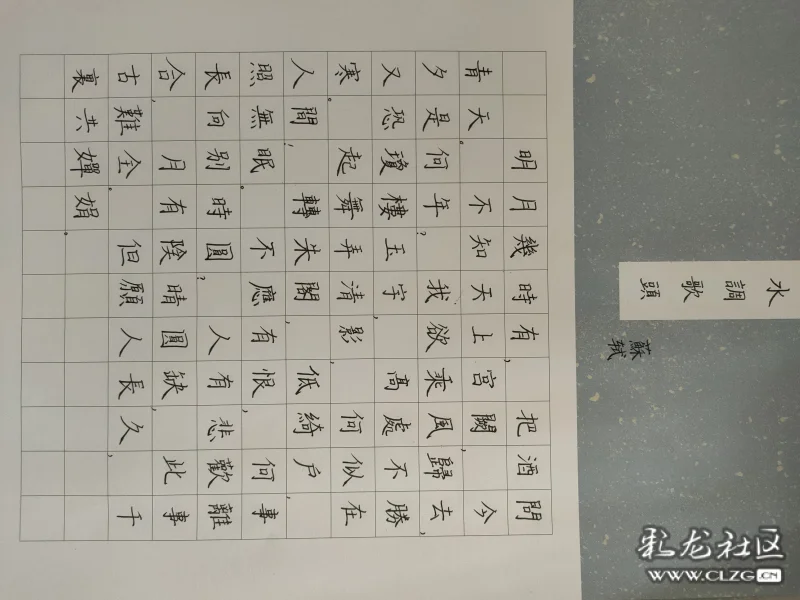 水調歌頭
蘇轼
明月幾時有,把酒問
青天。不知天上宮闕,今
夕是何年?我欲乘風歸去,
又恐瓊樓玉宇,高處不勝
寒。起舞弄清影,何似在
人間!轉朱閣,低綺户,
照無眠。不應有恨,何事
長向别時圓?人有悲歡離
合,月有陰晴圓缺,此事
古難全。但願人長久,千
裏共嬋娟。
彩龙社区
WWW.CLZG.CN